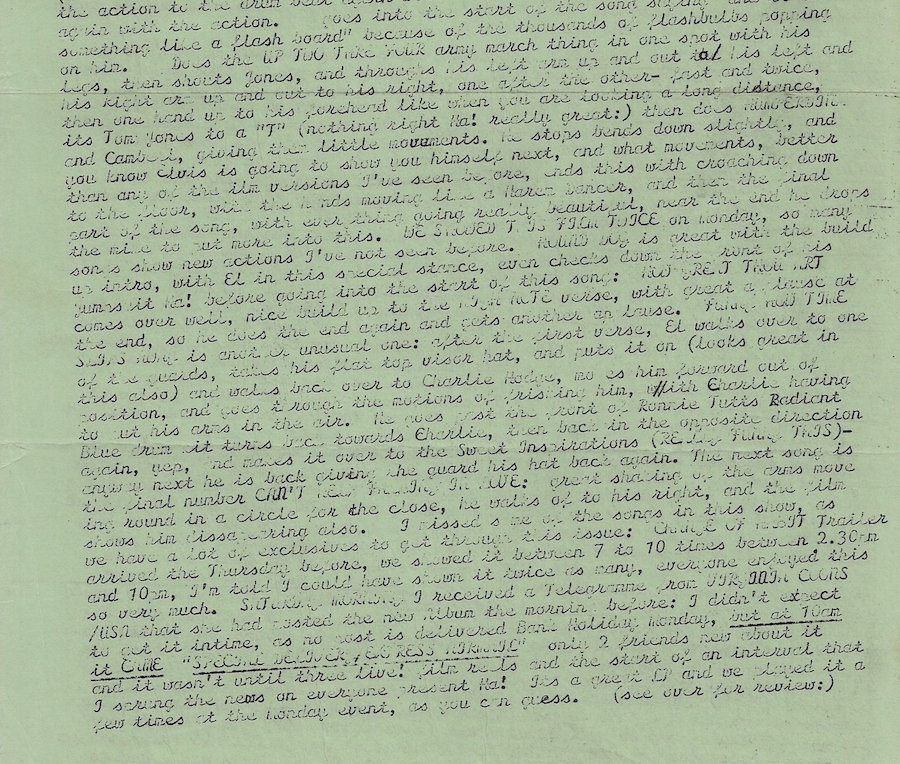 the action to the drum beat
again with the action. goes into the start of the song saying
something like a flash board" because of the thousands of flashbulbs popping
on him. Does the UP TWO TAKE FOUR army march thing in one spot with his
legs, then shouts Jones, and throughs his left arm up and out to/ his left and
his right arm up and out to his right, one after the other- fast and twice,
then one hand up to his forehead like when you are looking a long distance,
its Tom Jones to a "T" (nothing right Ha! really great:) then does
and Cambel, giving them little movements. He stops bends down slightly, and
you know Elvis is going to show you himself next, and what movements, better
than any of the film versions I've seen before, ends this with croaching down
to the floor, with the hands moving like a Harem Dancer, and then the final
part of the song, with ever thing going really beautiful, near the end he drops
the mike to put more into this. WE SHOWED THIS FILM TWICE on Monday, so many
songs show new actions I've not seen before. HOUND DOG is great with the build
up intro, with El in this special stance, even checks down the front of his
jumpsuit Ha! before going into the start of this song: HOW GREAT THOU ART
comes over well, nice build up to the HIGH NOTE verse, with great applause at
the end, so he does the end again and gets another applause. FUNNY HOW TIME
SLIPS AWAY is another unusual one: after the first verse, El walks over to one
of the guards, takes his flat top visor hat, and puts it on (looks great in
this also) and walks back over to Charlie Hodge, moves him forward out of
position, and goes through the motions of frisking him, with Charlie having
to put his arms in the air. He goes past the front of Ronnie Tutts Radiant
Blue drum kit turns back towards Charlie, then back in the opposite direction
again, yep, and makes it over to the Sweet Inspirations (REALLY FUNNY THIS)-
anyway next he is back giving the guard his hat back again. The next song is
the final number CAN'T HELP FALLING IN LOVE: great shaking of the arms move
ing round in a circle for the close, he walks of to his right, and the film
shows him dissapearing also. I missed some of the songs in this show, as
we have a lot of exclusives to get through this issue: CHANGE OF HABIT Trailer
arrived the Thursday before, we showed it between 7 to 10 times between 2.30pm
and 10pm, I'm told I could have shown it twice as many, everyone enjoyed this
so very much. SATURDAY MORNING I received a Telegramme from VIRGINIA COONS
/USA that she had posted the new Album the morning before: I didn't expect
to get it intime, as no post is delivered Bank Holiday Monday, but at 10am
it CAME "SPECIAL DELIVERY EXPRESS AIRMAIL" only 2 friends new about it
and it wasn't until three live! film reels and the start of an interval that
I sprung the news on everyone present Ha! Its a great LP and we played it a
few times at the Monday event, as you can guess. (see over for review:)